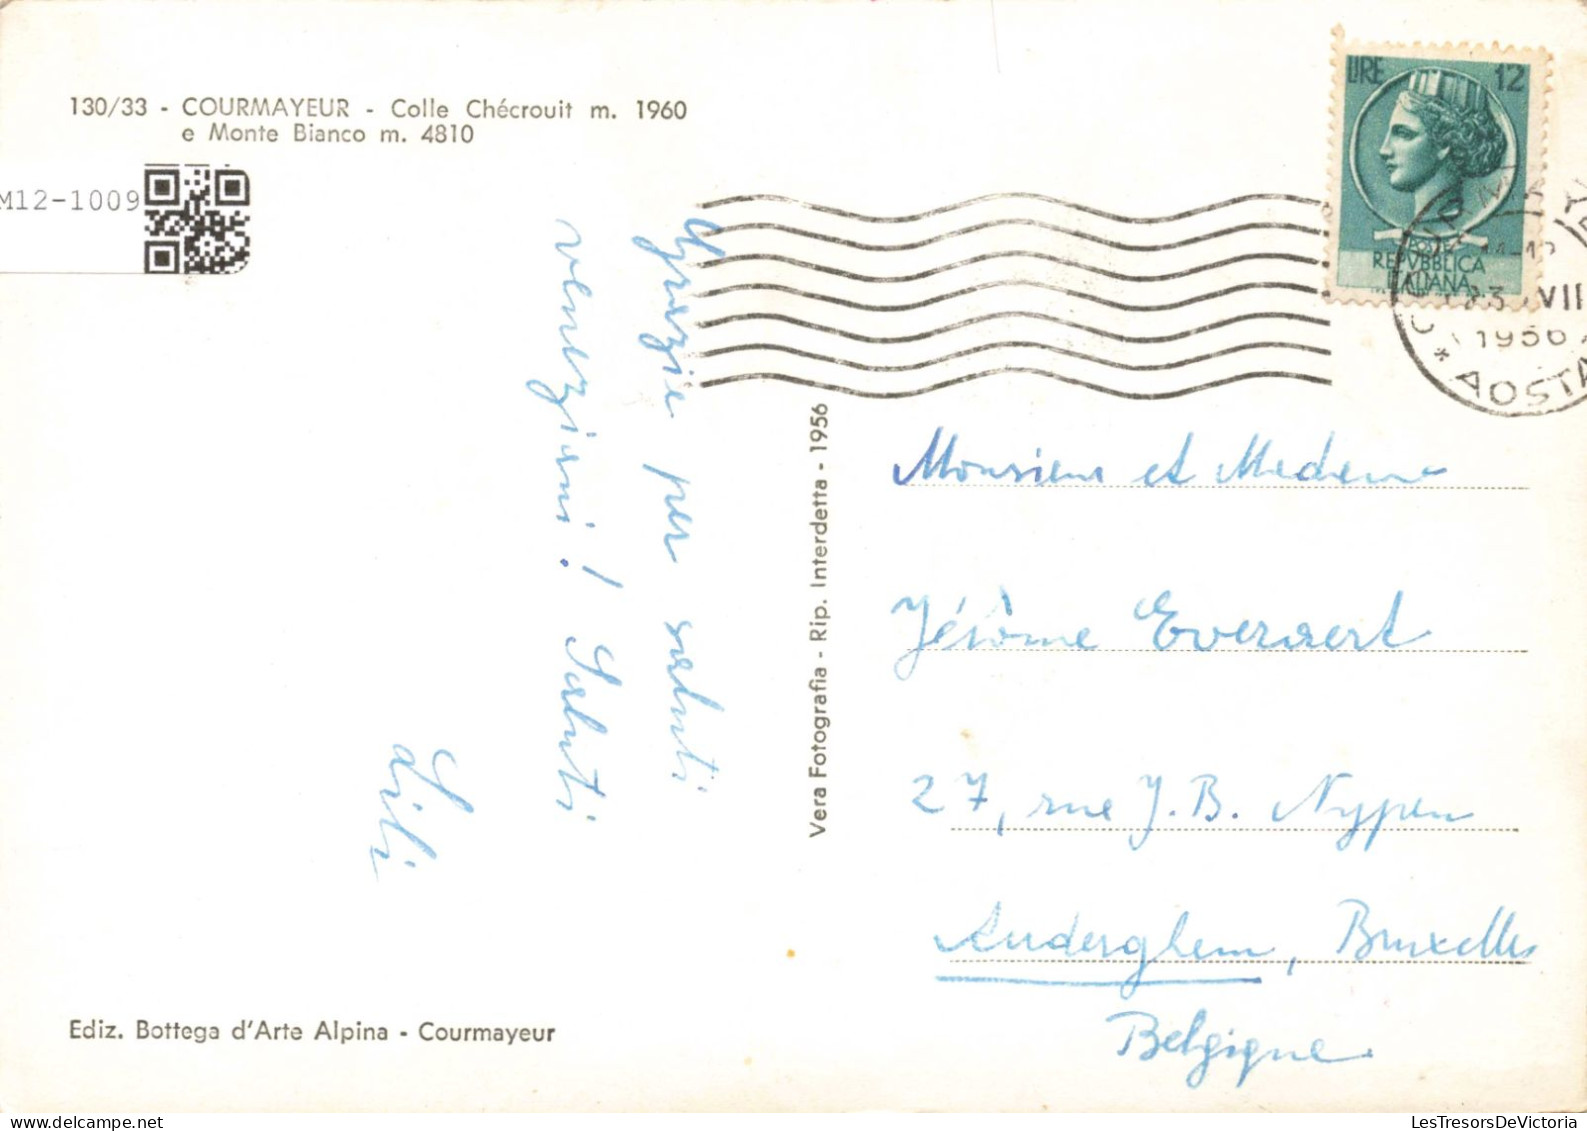 130/33 - COURMAYEUR - Colle Chécrouit m. 1960
e Monte Bianco m. 4810
M12-1009
LIRE 12
POSTE
REPVBBLICA
ITALIANA
1956
AOSTA
Grazie per saluti
veneziani! Saluti
Lili
Vera Fotografia - Rip. Interdetta - 1956
Monsieur et Madame
Jérôme Everaert
27, rue J. B. Nypen
Auderghem, Bruxelles
Belgique
Ediz. Bottega d'Arte Alpina - Courmayeur
LesTresorsDeVictoria